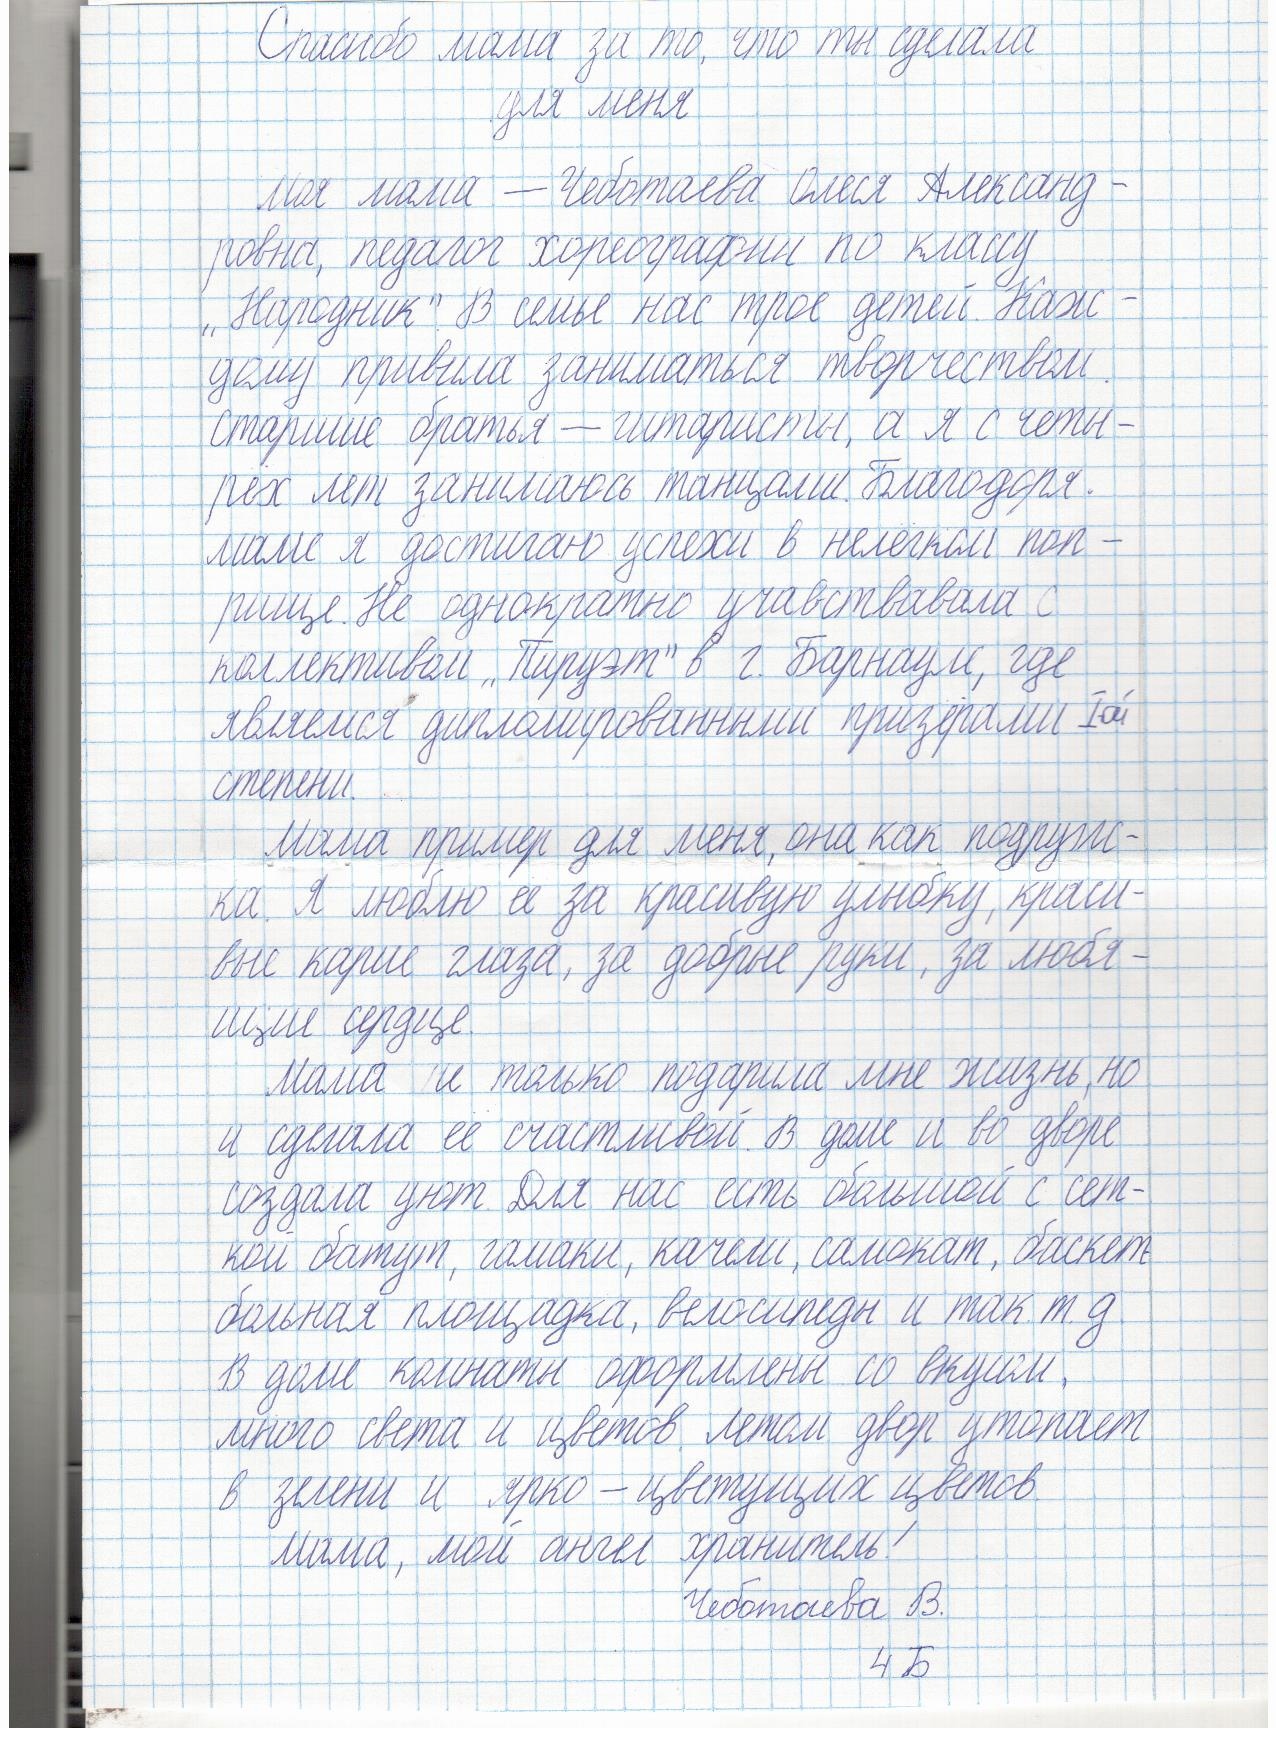 Спасибо мама за то, что ты сделала
для меня
Моя мама — Чеботаева Олеся Александ-
ровна, педагог хореографии по классу
„Народник". В семье нас трое детей. Каж-
дому привила заниматься творчеством.
Старшие братья — гитаристы, а я с четы-
рёх лет занимаюсь танцами. Благодоря.
маме я достигаю успехи в нелегком поп-
рище. Не однократно учавствавала с
коллективом „Пируэт" в г. Барнауле, где
являемся дипломированными призёрами I ой
степени.
Мама пример для меня, она как подруж-
ка. Я люблю ее за красивую улыбку, краси-
вые карие глаза, за добрые руки, за любя-
щие сердце.
Мама не только подарила мне жизнь, но
и сделала ее счастливой. В доме и во дворе
создала уют. Для нас есть большой с сет-
кой батут, гамаки, качели, самокат, баскет-
больная площадка, велосипеды и так т. д.
В доме комнаты оформлены со вкусом,
много света и цветов. Летом двор утопает
в зелени и ярко – цветущих цветов
Мама, мой ангел хранитель!
Чеботаева В.
4 Б